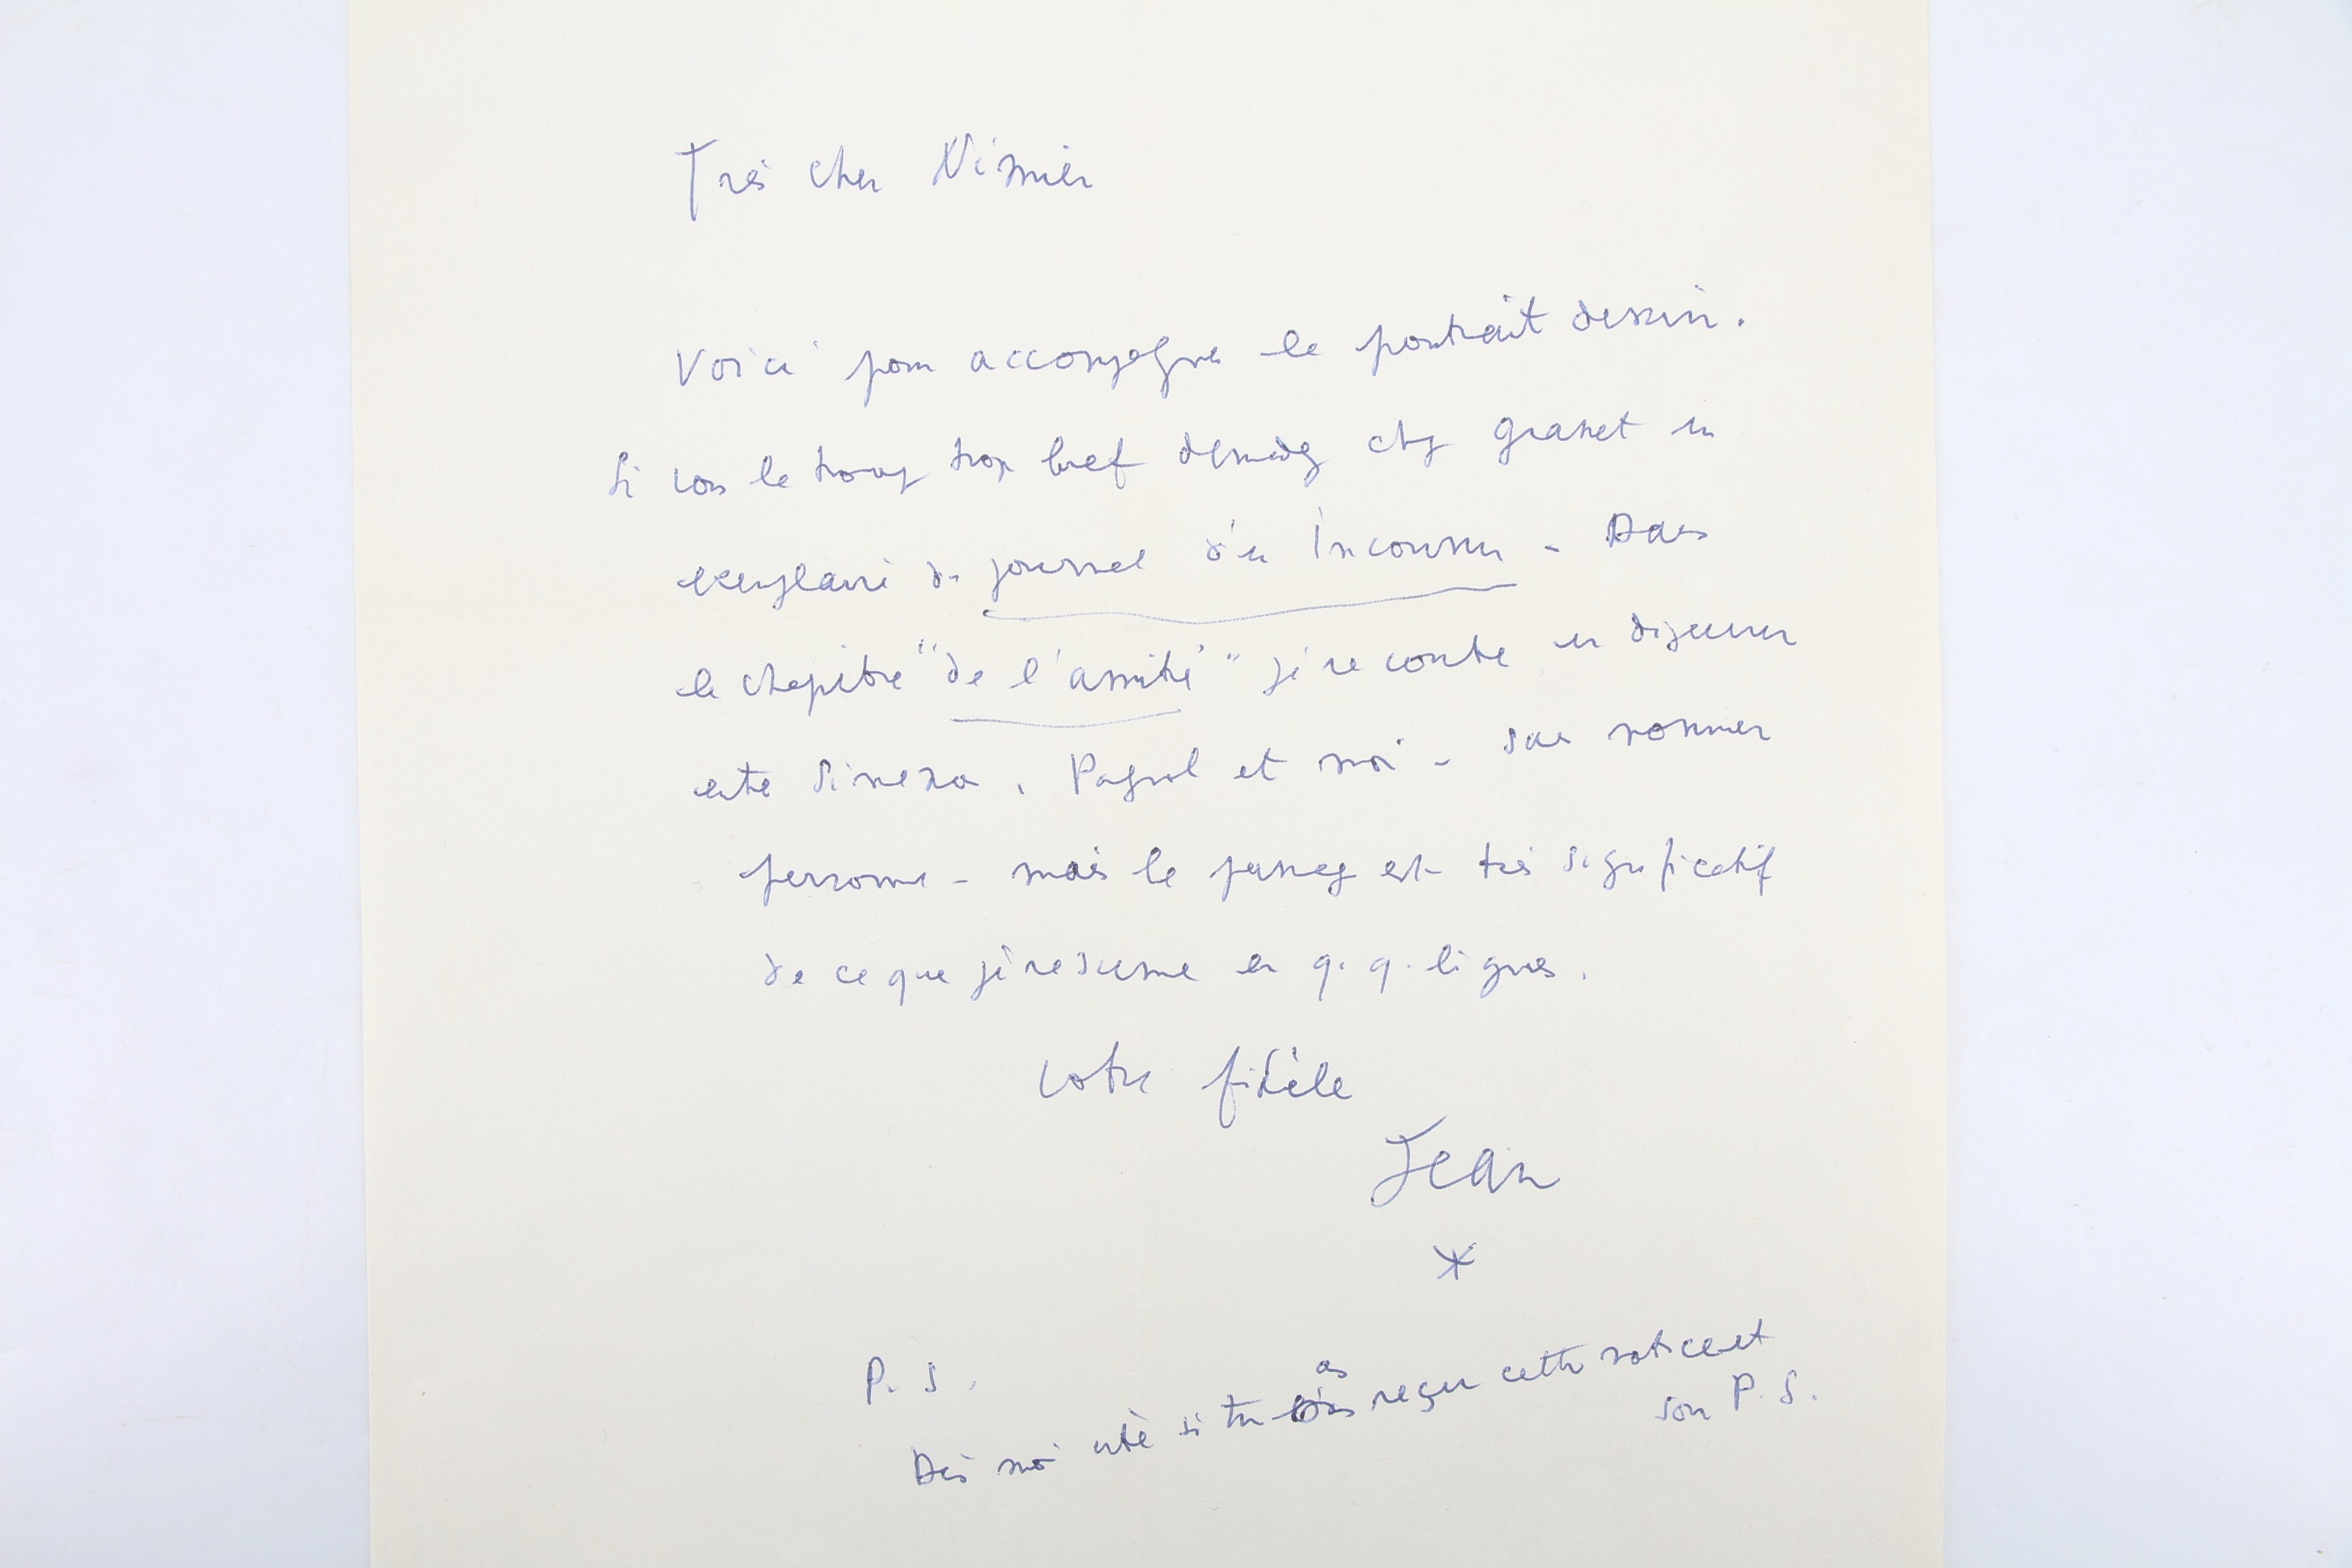 Très cher Nimier
Voici pour accompagner le portrait dessin.
Si vous le trouvez trop bref demandez chez Grasset un
exemplaire du journal d'un Inconnu - Dans
le chapitre "de l'amitié" je raconte un déjeuner
entre Simenon, Pagnol et moi - sans nommer
personne - mais le passage est très significatif
de ce que je résume en q. q. lignes.
votre fidèle
Jean
*
P. S.
as
Dis moi vite si tu reçu cette notice et
son P. S.